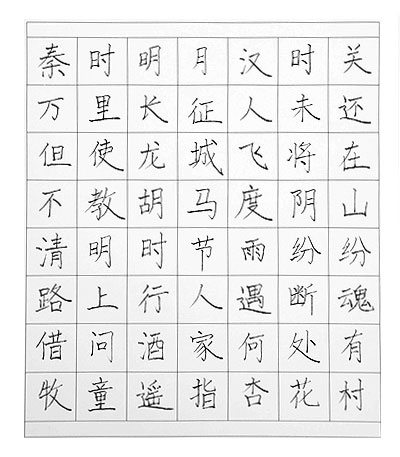 秦时明月汉时关
万里长征人未还
但使龙城飞将在
不教胡马度阴山
清明时节雨纷纷
路上行人遇断魂
借问酒家何处有
牧童遥指杏花村